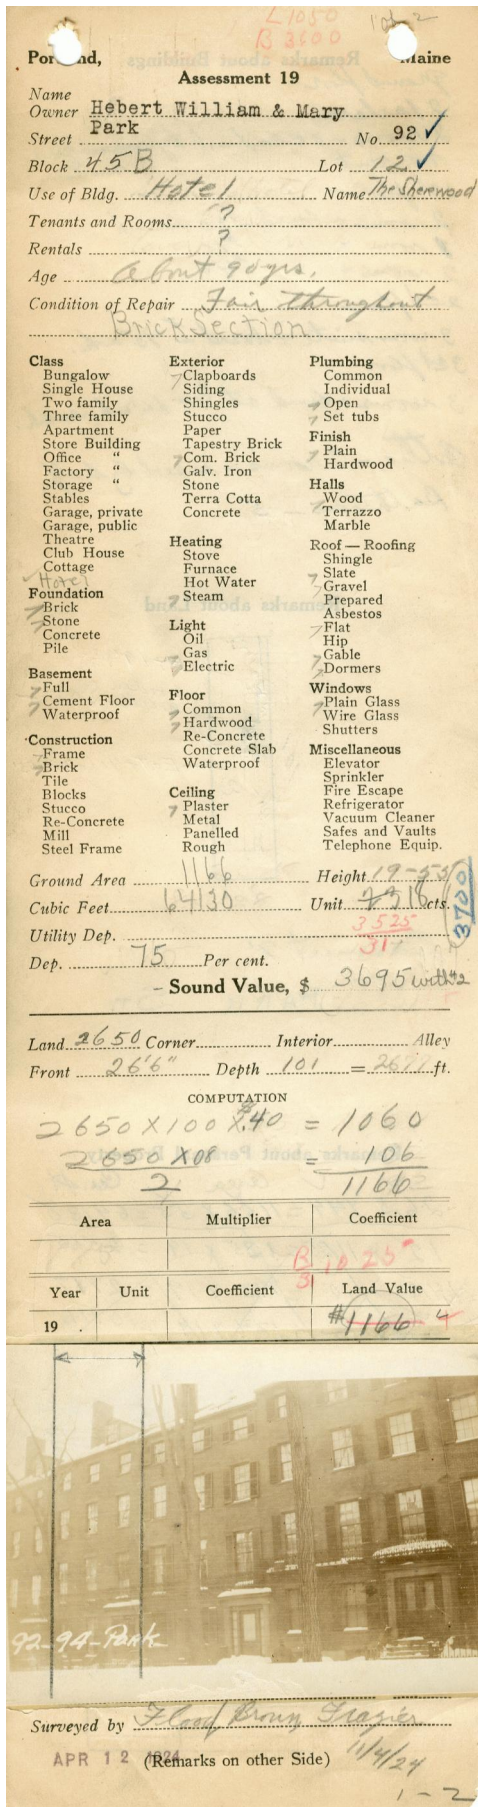 L1050
B 3600
1 of 2
Portland, Maine
Assessment 19
Name
Owner Hebert William & Mary
Street Park No. 92 ✓
Block 45B Lot 12 ✓
Use of Bldg. Hotel Name The Sherewood
Tenants and Rooms ?
Rentals ?
Age About 90 yrs.
Condition of Repair Fair throughout
Brick Section
Class
Bungalow
Single House
Two family
Three family
Apartment
Store Building
Office "
Factory "
Storage "
Stables
Garage, private
Garage, public
Theatre
Club House
Cottage
Hotel
Foundation
Brick
Stone
Concrete
Pile
Basement
Full
Cement Floor
Waterproof
Construction
Frame
Brick
Tile
Blocks
Stucco
Re-Concrete
Mill
Steel Frame
Exterior
Clapboards
Siding
Shingles
Stucco
Paper
Tapestry Brick
Com. Brick
Galv. Iron
Stone
Terra Cotta
Concrete
Heating
Stove
Furnace
Hot Water
Steam
Light
Oil
Gas
Electric
Floor
Common
Hardwood
Re-Concrete
Concrete Slab
Waterproof
Ceiling
Plaster
Metal
Panelled
Rough
Plumbing
Common
Individual
Open
Set tubs
Finish
Plain
Hardwood
Halls
Wood
Terrazzo
Marble
Roof — Roofing
Shingle
Slate
Gravel
Prepared
Asbestos
Flat
Hip
Gable
Dormers
Windows
Plain Glass
Wire Glass
Shutters
Miscellaneous
Elevator
Sprinkler
Fire Escape
Refrigerator
Vacuum Cleaner
Safes and Vaults
Telephone Equip.
Ground Area 1166 Height 19-55
Cubic Feet 64130 Unit cts.
3525
317
3700
Utility Dep.
Dep. 75 Per cent.
Sound Value, $ 3695 with #2
Land 2650 Corner Interior Alley
Front 26'6" Depth 101 = 2677 ft.
COMPUTATION
2650 X 100 X .40 = 1060
2650 X 08 = 106
2 1166
Area Multiplier Coefficient
B 1025
31
Year Unit Coefficient Land Value
19 #1166
92-94-Park
Surveyed by Flood Frazier
APR 12 1924 (Remarks on other Side) 11/4/24
1-2